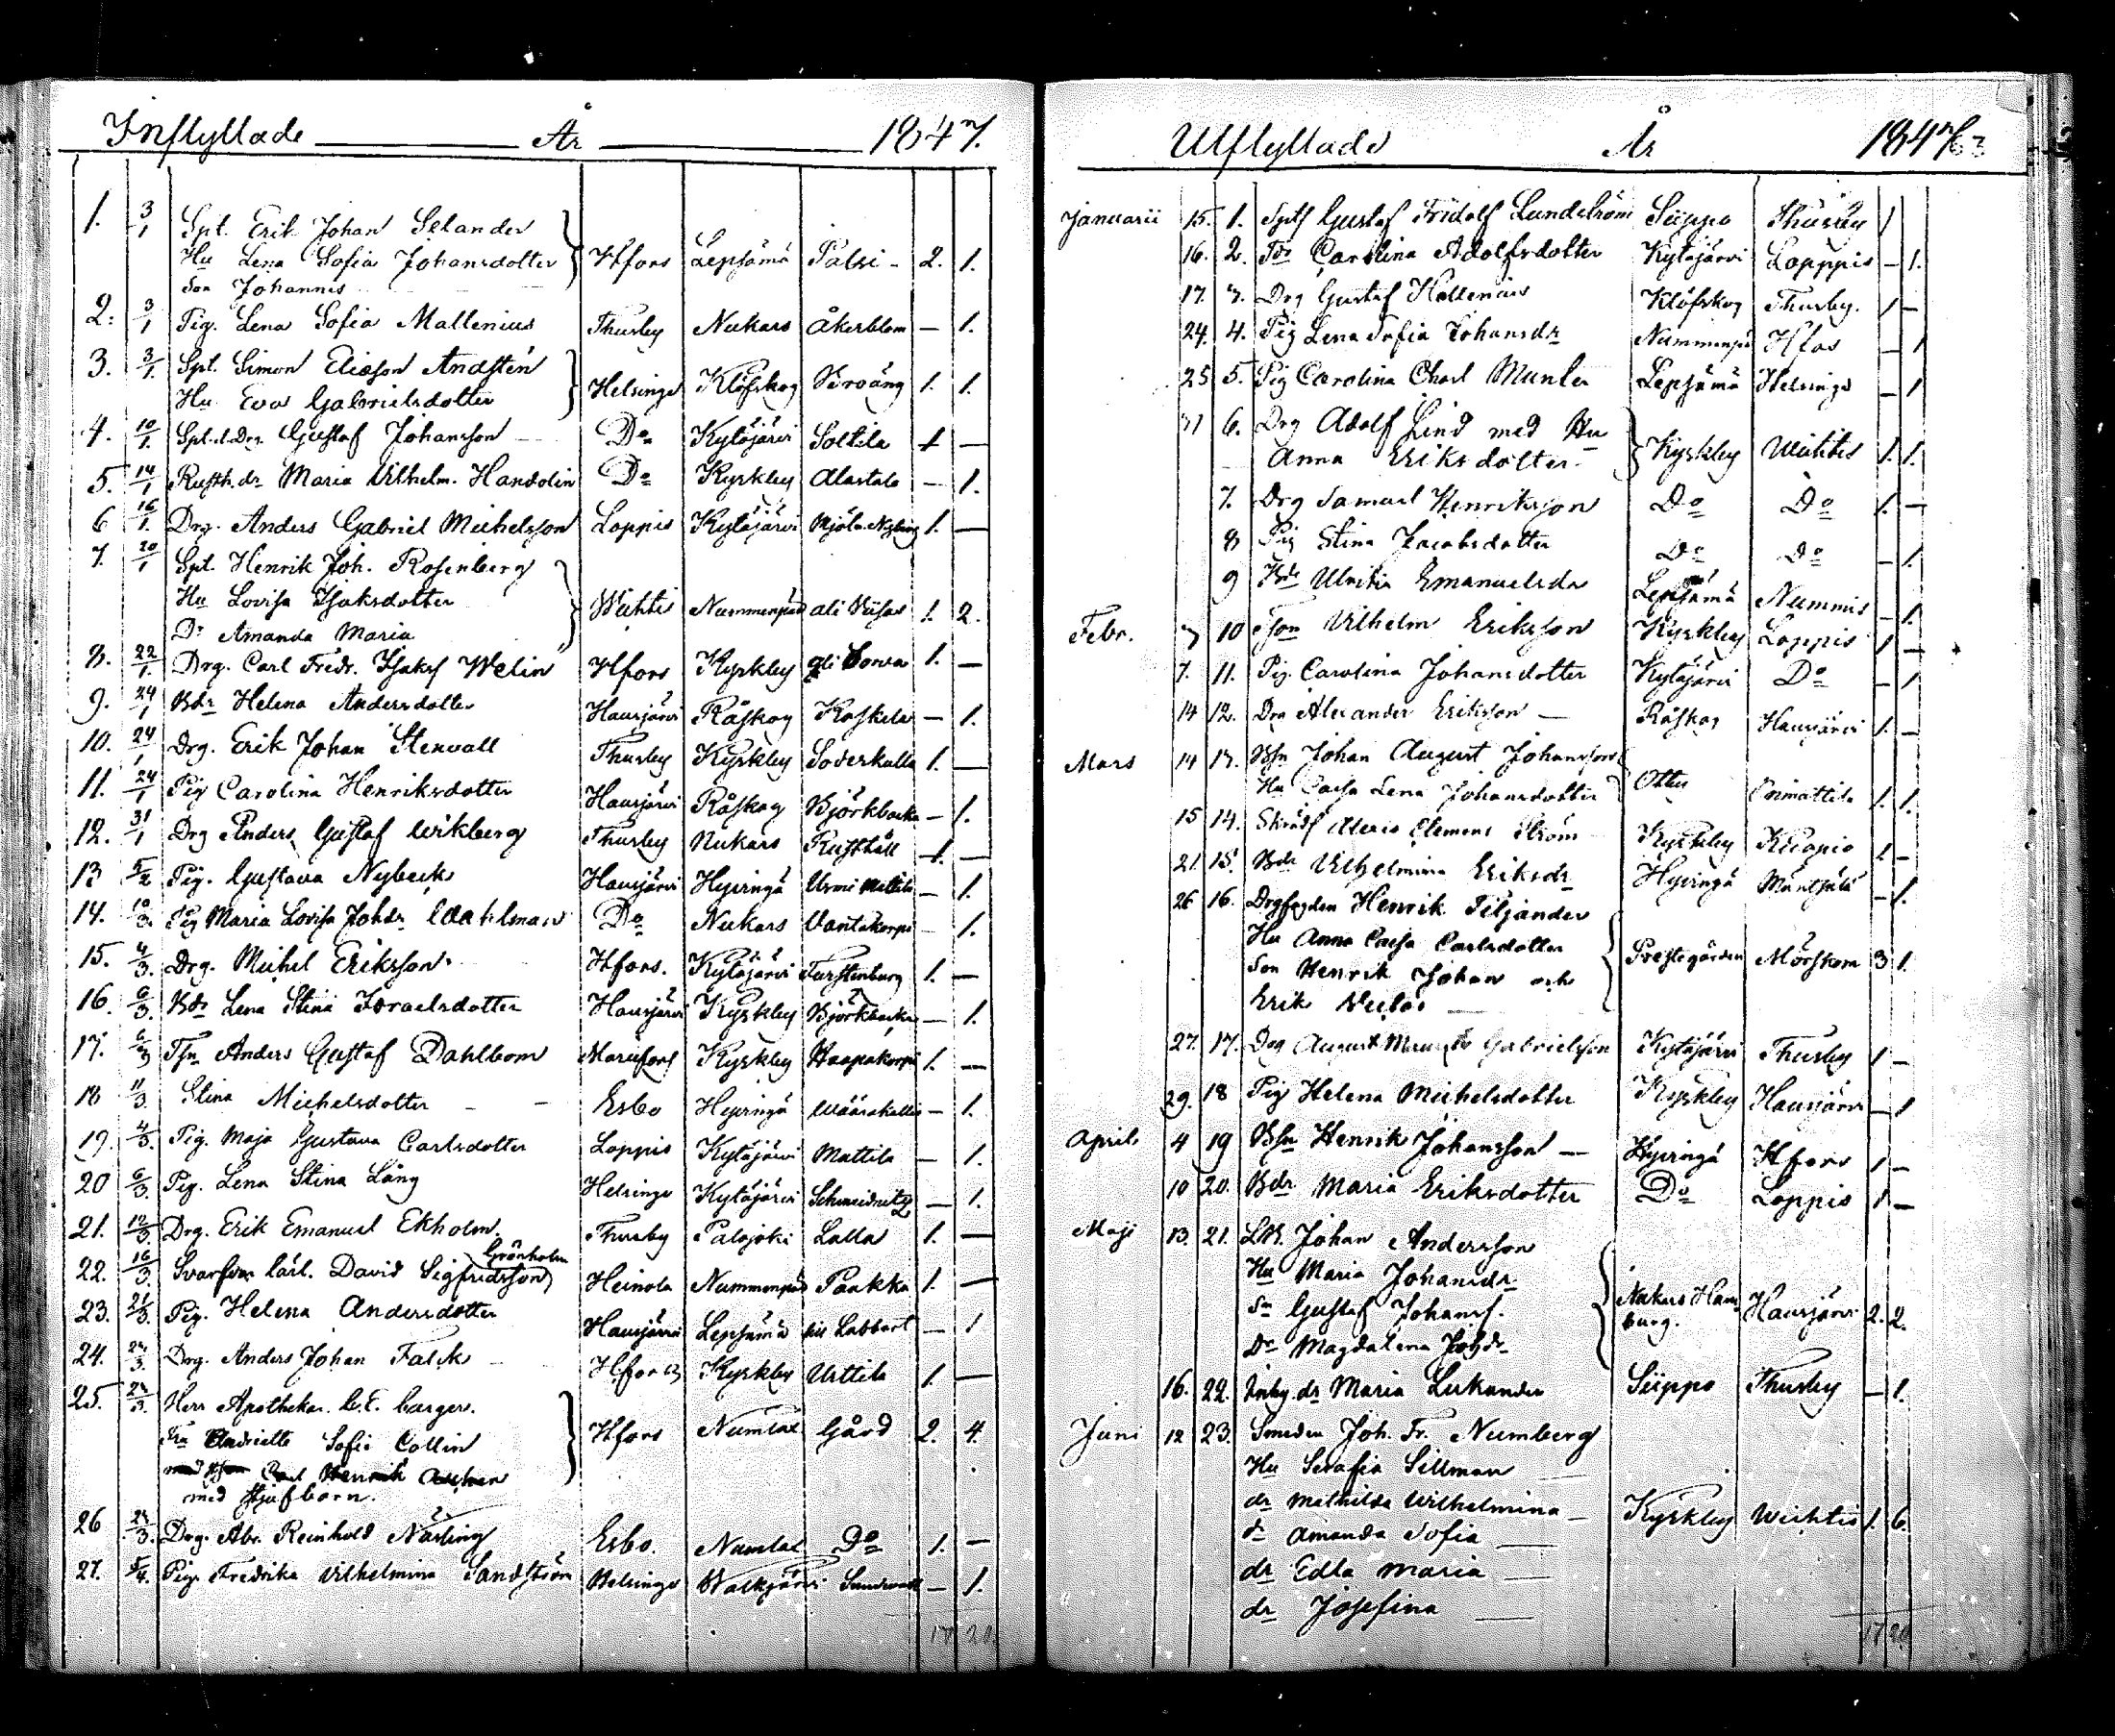 Inflyttade År 1847.
1. 3/1 Spl. Erik Johan Selander
Hu Lena Sofia Johansdotter Hfors Lepsämä Palsi - 2. 1.
Son Johannes
2. 3/1 Pig. Lena Sofia Mallenius Thusby Nukars Åkerblom - 1.
3. 3/1 Spl. Simon Eliasson Andstén
Hu Eva Gabrielsdotter Helsinge Klöfskog Broäng 1. 1.
4. 10/1 Spl. d. Drg Gustaf Johansson Do Kytäjärvi Soltila 1 -
5. 14/1 Rusth. dr Maria Vilhelm. Handolin Do Kyrkby Alastalo - 1.
6 16/1 Drg. Anders Gabriel Michelsson Loppis Kytäjärvi 1. -
7. 20/1 Spl. Henrik Joh. Rosenberg
Hu Lovisa Isaksdotter Wichtis Nummenpää 1. 2.
Dr Amanda Maria
8. 22/1 Drg. Carl Fredr. Isaks Welin Hfors Kyrkby 1. -
9. 24/1 Bdr Helena Andersdotter Hausjärvi Råskog Koskela - 1.
10. 24/1 Drg. Erik Johan Stenvall Thusby Kyrkby Söderkulla 1. -
11. 24/1 Pig Carolina Henriksdotter Hausjärvi Råskog Björkbacka - 1.
12. 31/1 Drg Anders Gustaf Wikberg Thusby Nukars Rusthåll 1. -
13 5/2 Pig. Gustava Nybeck Hausjärvi Hyvingä Urmi Mattila - 1.
14. Pig Maria Lovisa Johdr Wahlman Do Nukars Vantakorpi - 1.
15. 4/3. Drg. Michel Eriksson Hfors. Kytäjärvi Furstenburg 1. -
16 6/3. Bdr Lena Stina Israelsdotter Hausjärvi Kyrkby Björkbacka - 1.
17. 6/3 Tsn Anders Gustaf Dahlbom Mariefors Kyrkby Haapakorpi 1. -
18 11/3. Stina Michelsdotter - - Esbo Hyvingä Määräkallio - 1.
19. 4/3. Pig. Maja Gustava Carlsdotter Loppis Kytäjärvi Mattila - 1.
20 6/3. Pig. Lena Stina Lång Helsinge Kytäjärvi - 1.
21. 12/3. Drg. Erik Emanuel Ekholm Thusby Palojoki Lalla 1. -
Grönholm
22. 16/3. lärl. David Sigfridsson Heinola Nummenpää Paakka 1. -
23. 21/3. Pig. Helena Andersdotter Hausjärvi Lepsämä Labbart - 1
24. Drg. Anders Johan Falck Hfors Kyrkby Uttila 1. -
25. Herr Apothekar. C. E. Carger.
Fru Sofie Collin Hfors Numlax Gård 2. 4.
med
med Hjufbarn.
26 Drg. Abr. Reinhold Närling Esbo. Numlax Do 1. -
27. 5/4. Pig. Fredrika Vilhelmina Sandström Helsinge Walkjärvi - 1.
17 20.
Utflyttade År 1847 63
Januarii 15. 1. Gustaf Fridolf Lundström Siippo Thusby 1
16. 2. Tdr Carolina Adolfsdotter Kytäjärvi Loppis - 1.
17. 3. Drg Gustaf Hellenius Klöfskog Thusby. 1 -
24. 4. Pig Lena Sofia Johansdr Nummenpää Hfos - 1
25 5. Pig Carolina Charl Munter Lepsämä Helsinge - 1
31 6. Drg Adolf Lind med Hu
Anna Eriksdotter Kyrkby Wichtis 1. 1.
7. Drg Samuel Henriksson Do Do 1. -
8 Pig Stina Jacobsdotter Do Do - 1.
9 Bdr Ulrika Emanuelsdr Lepsämä Nummis - 1.
Febr. 7 10 Tson Vilhelm Eriksson Kyrkby Loppis 1 -
7. 11. Pig. Carolina Johansdotter Kytäjärvi Do - 1
14 12. Drg Alexander Eriksson - Råskog Hausjärvi 1. -
Mars 14 13. Bsn Johan August Johansson
Hu Cajsa Lena Johansdotter Ottu Orimattila 1. 1.
15 14. Skrädd Alexis Clemens Ström Kyrkby Kuopio 1 -
21. 15. Bdr Vilhelmina Eriksdr Hyvingä Mäntsälä - 1.
26 16. Drgfogden Henrik Siljander
Hu Anna Cajsa Carlsdotter
Son Henrik Johan och Prestegården Mörskom 3 1.
Erik
27. 17. Drg August Gabrielsson Kytäjärvi Thusby 1 -
29. 18 Pig Helena Michelsdotter Kyrkby Hausjärvi - 1
April 4 19 Bsn Henrik Johansson - Hyvingä Hfors 1 -
10 20. Bdr Maria Eriksdotter Do Loppis 1 -
Maji 13. 21. Johan Andersson
Hu Maria Johansdr
Sn Gustaf Johans. Nukars Ham Hausjärvi 2. 2.
burg.
Dr Magdalena Johdr
16. 22. Inhg. dr Maria Lukander Siippo Thusby - 1.
Juni 12 23. Smeden Joh. Fr. Numberg
Hu Serafia Sillman
dr Mathilda Wilhelmina - Kyrkby Wichtis 1. 6.
dr Amanda Sofia
dr Edla Maria
dr Josefina
17 20